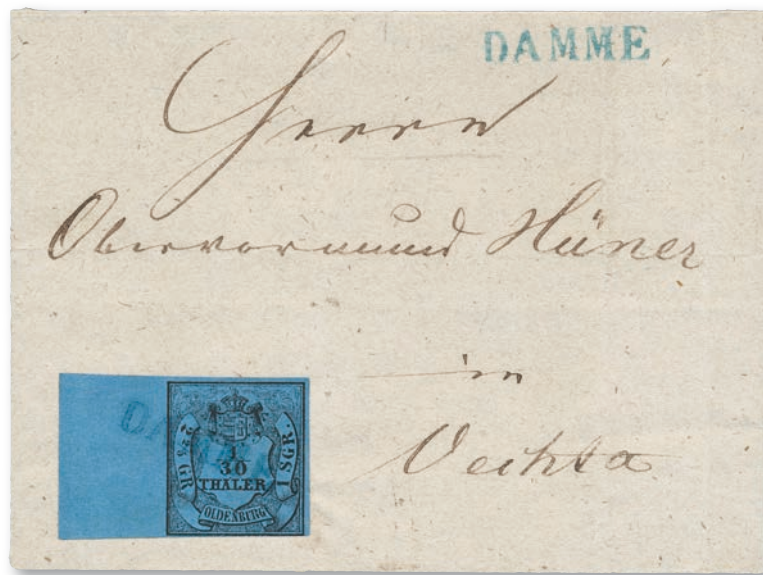 DAMME
Herrn
Obervormund Hüner
in
Vechta
DAMME
2⅖ GR.
1 SGR.
1
30
THALER
OLDENBURG